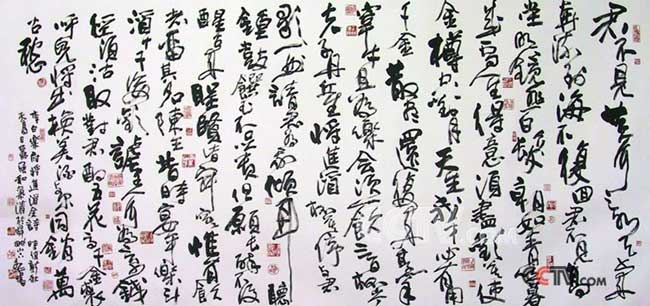 君不見黄河之水天上来
奔流到海不復回君不見高
堂明鏡悲白髮朝如青絲暮
成雪人生得意須盡歡莫使
金樽空對月天生我材必有用
千金散盡還復来烹羊
宰牛且為樂會須一飲三百杯岑
夫子丹丘生将進酒杯莫停与君
歌一曲請君為我傾耳聽
鐘鼓饌玉不足貴但願長醉不復
醒古来聖賢皆寂寞惟有飲
者留其名陳王昔時宴平樂斗
酒十千恣歡謔主人何為言少錢
徑須沽取對君酌五花馬千金裘
呼兒将出換美酒与尔同銷萬
古愁
李白樂府将進酒全詩
CCTV.com